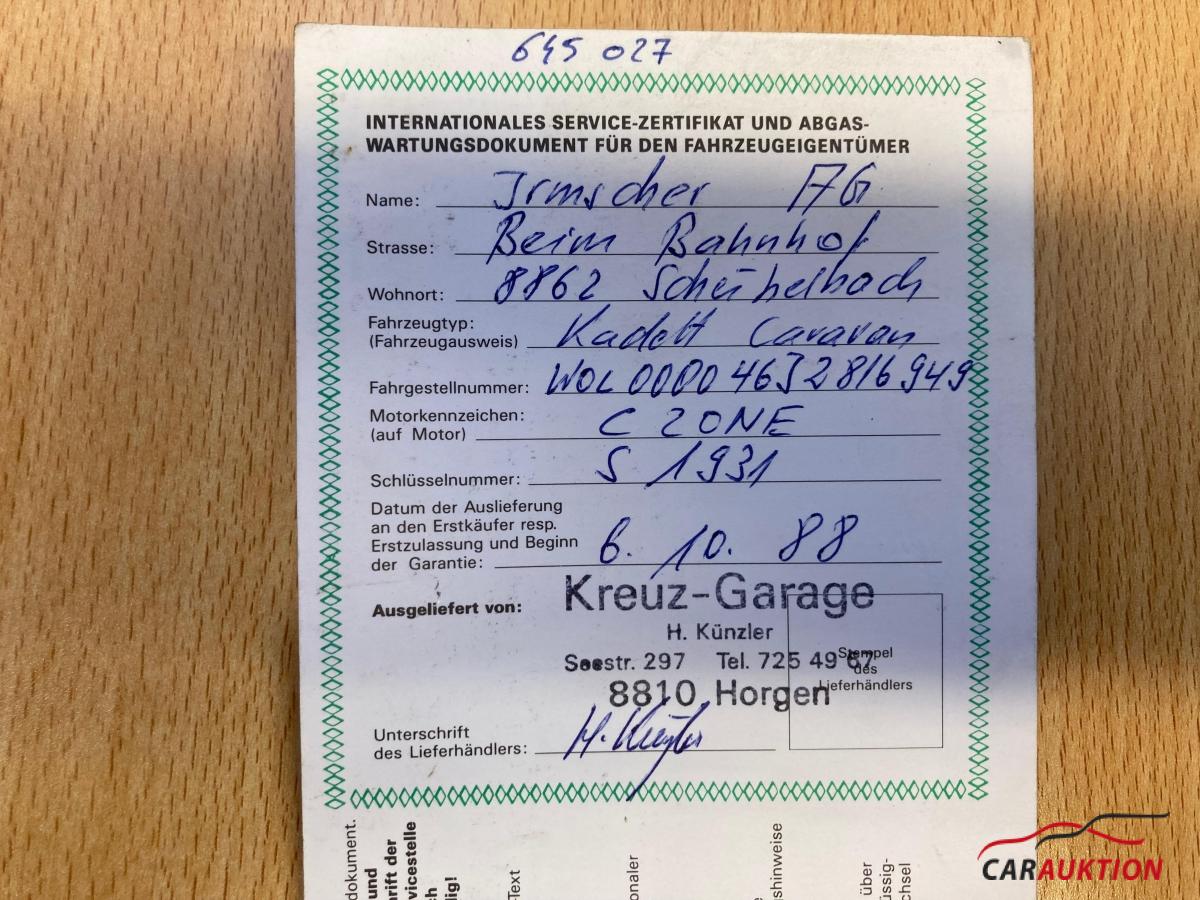 645 027
INTERNATIONALES SERVICE-ZERTIFIKAT UND ABGAS-
WARTUNGSDOKUMENT FÜR DEN FAHRZEUGEIGENTÜMER
Name: Irmscher AG
Strasse: Beim Bahnhof
Wohnort: 8862 Schübelbach
Fahrzeugtyp:
(Fahrzeugausweis) Kadett Caravan
Fahrgestellnummer: WOL000046J2816949
Motorkennzeichen:
(auf Motor) C 20NE
Schlüsselnummer: S 1931
Datum der Auslieferung
an den Erstkäufer resp.
Erstzulassung und Beginn
der Garantie: 6. 10. 88
Ausgeliefert von: Kreuz-Garage
H. Künzler
Seestr. 297 Tel. 725 49 67
8810 Horgen
Stempel
des
Lieferhändlers
Unterschrift
des Lieferhändlers: H. Künzler
dokument.
und
rift der
vicestelle
ch
dig!
-Text
onaler
gshinweise
über
üssig-
chsel
CARAUKTION